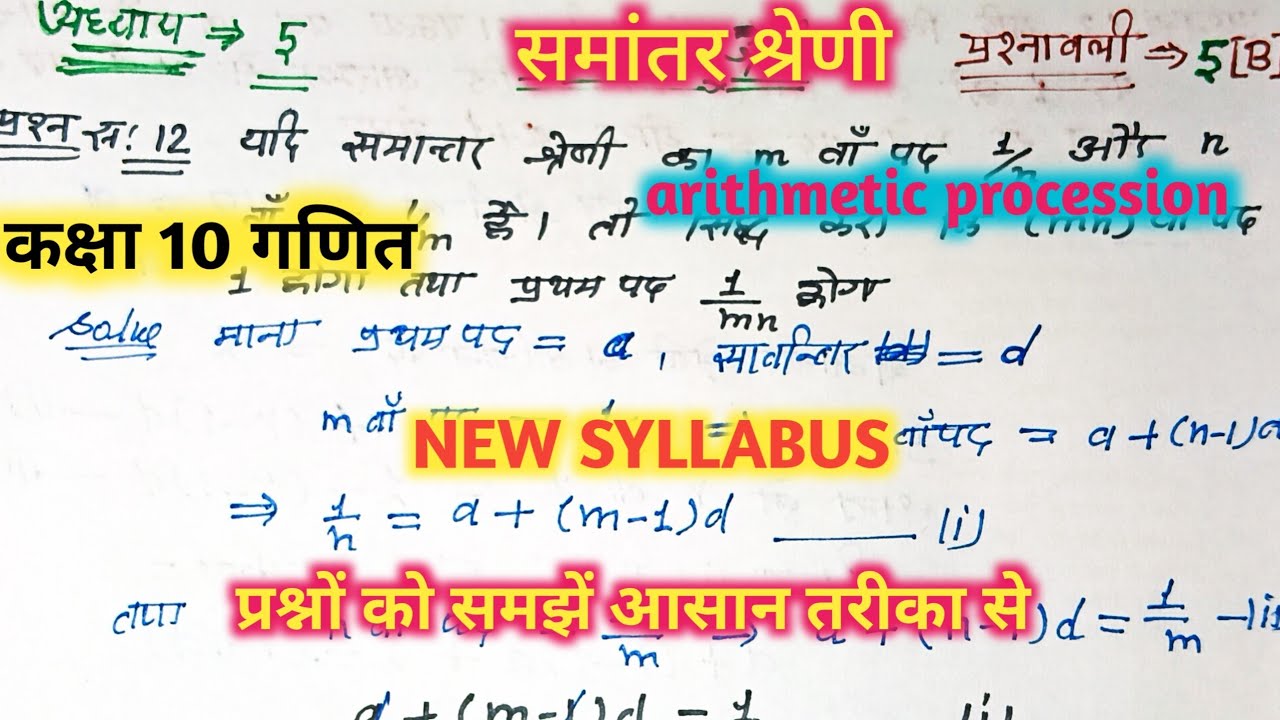 अध्याय ⇒ 5
समांतर श्रेणी
प्रश्नावली ⇒ 5[B]
प्रश्न स: 12 यदि समान्तर श्रेणी का m वाँ पद 1/n और n
arithmetic procession
वाँ 1/m है। तो सिद्ध करो कि (mn) वाँ पद
कक्षा 10 गणित
1 होगा तथा प्रथम पद 1/mn होगा
Solve माना प्रथम पद = a, सार्वान्तर = d
m वाँ वाँ पद = a+(n-1)d
NEW SYLLABUS
⇒ 1/n = a+(m-1)d —— (i)
प्रश्नों को समझें आसान तरीका से
तथा 1/m ⇒ d = 1/m -(ii
a+(m-1)d = 1 (i)